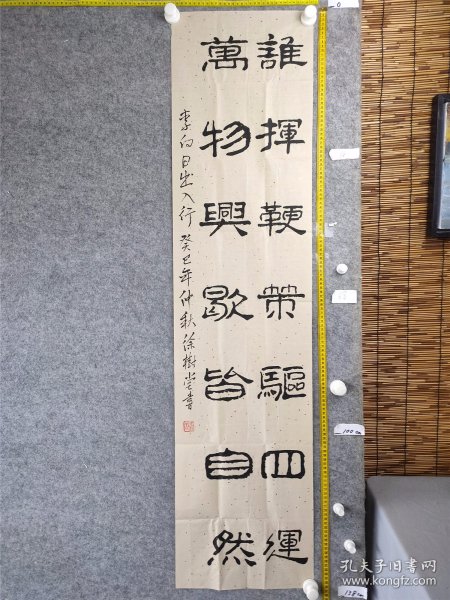 誰揮鞭策驅四運
萬物興歇皆自然
李白日出入行 癸巳年仲秋徐樹堂書
0
100cm
138cm
孔夫子旧书网
www.kongfz.com